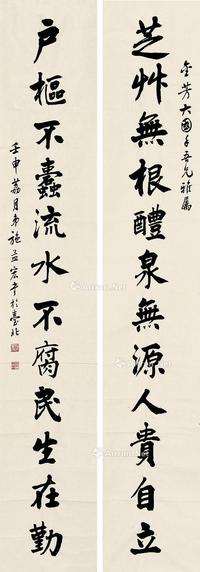 金芳大国手吾兄雅属
芝艸無根醴泉無源人貴自立
户樞不蠹流水不腐民生在勤
壬申荔月弟施孟宏书於臺北